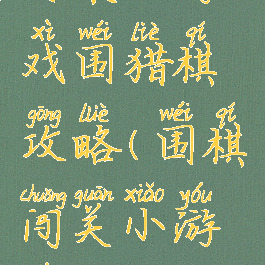 xì wéi liè qí
戏围猎棋
gōng lüè wéi qí
攻略(围棋
chuǎng guān xiǎo yóu
闯关小游